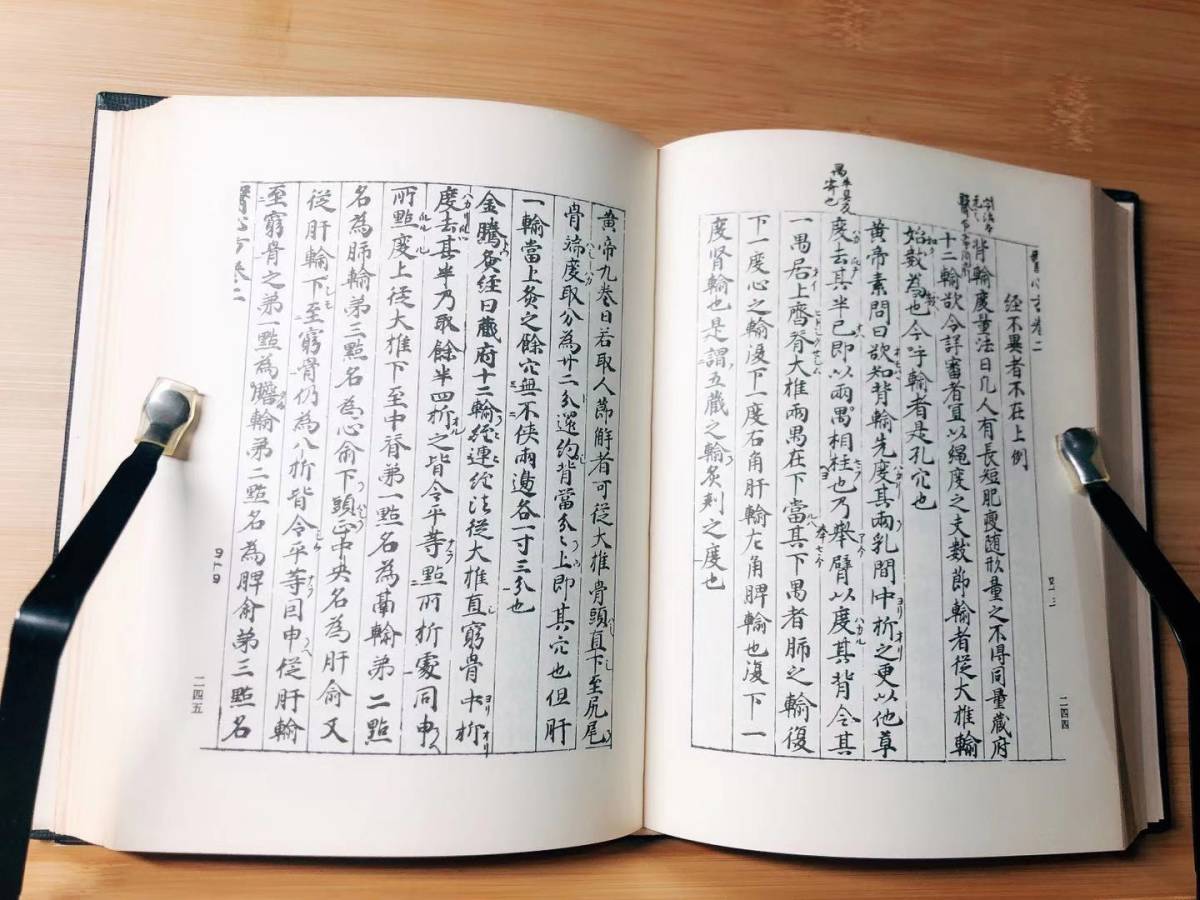 醫心方卷二
經不異者不在上例
背輸度量法曰凡人有長短肥瘦随形量之不得同量蔵府
十二輸欲令詳審者宜以縄度之夫數節輸者従大椎輸
始數為也今呼輸者是孔穴也
黄帝素問曰欲知背輸先度其兩乳間中折之更以他草
度去其半已即以兩禺相柱也乃舉臂以度其背令其
一禺居上齊脊大椎兩禺在下當其下禺者肺之輸復
下一度心之輸復下一度右角肝輸左角脾輸也復下一
度腎輸也是謂五蔵之輸灸刺之度也
二四四
黄帝九卷曰若取人節解者可従大椎骨頭直下至尻尾
骨端度取分為廿二分還約背當分之上即其穴也但肝
一輸當上灸之餘穴無不侠兩邊各一寸三分也
金騰灸経曰蔵府十二輸経連経法従大椎直窮骨中折
度去其半乃取餘半四折之皆令平等點所折處同申
所點度上従大椎下至中脊第一點名為輸第二點
名為肺輸第三點名為心俞下頭正中央名為肝俞又
従肝輸下至窮骨仍為八折皆令平等回申従肝輸
至窮骨之第一點為輸第二點名為脾俞第三點名
醫心方卷二
四十四
二四五